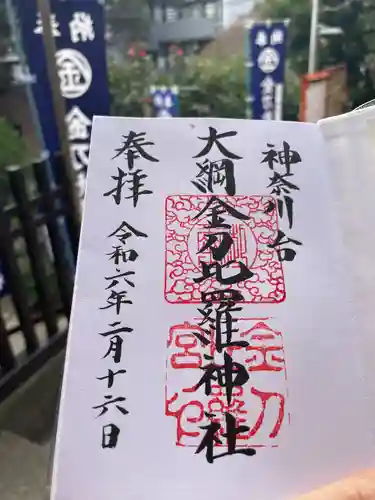 神奈川台
大綱金刀比羅神社
奉拝
令和六年二月十六日
金刀
奉
納
金
刀
納
金